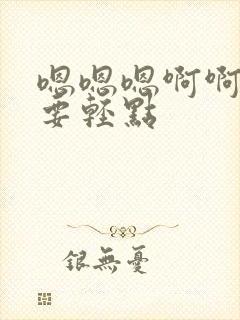 嗯嗯嗯啊啊
要轻點
银無憂